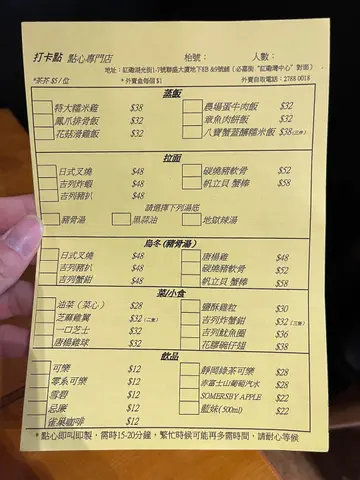 打卡點 點心專門店 枱號： 人數：
地址：紅磡湖光街1-7號聯盛大廈地下8B &9號舖 (必嘉街“紅磡灣中心”對面)
*茶芥 $5 /位 *外賣盒每個 $1 外賣自取電話：2788 0018
蒸飯
特大糯米雞 $38 農場蛋牛肉飯 $32
鳳爪排骨飯 $32 章魚肉餅飯 $32
花菇滑雞飯 $32 八寶蟹蓋釀糯米飯 $38
拉面
日式叉燒 $48 碳燒豬軟骨 $52
吉列炸蝦 $48 帆立貝 蟹棒 $58
吉列豬扒 $48
請選擇下列湯底
豬骨湯 黑蒜油 地獄辣湯
烏冬(豬骨湯)
日式叉燒 $48 唐楊雞 $48
吉列豬扒 $48 碳燒豬軟骨 $52
吉列蟹鉗 $48 帆立貝 蟹棒 $58
菜/小食
油菜（菜心） $28 鹽酥雞粒 $30
芝麻雞翼 $32 吉列炸蟹鉗 $32
一口芝士 $32 吉列魷魚圈 $36
唐楊雞球 $32 花膠碗仔翅 $38
飲品
可樂 $12 靜岡綠茶可樂 $28
零系可樂 $12 富士山葡萄汽水 $28
雪碧 $12 SOMERSBY APPLE $22
忌廉 $12 藍妹(500ml) $22
雀巢咖啡 $12
*點心即叫即製，需時15-20分鐘，繁忙時候可能再多需時間，請耐心等候